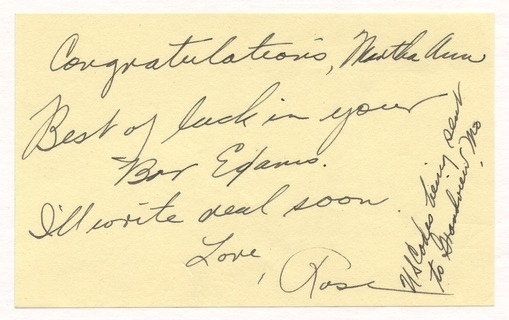 Congratulations, Martha Ann
Best of luck in your
Bar Exams.
I'll write real soon.
Love,
Rose
US Codes being sent
to Grandview, Mo